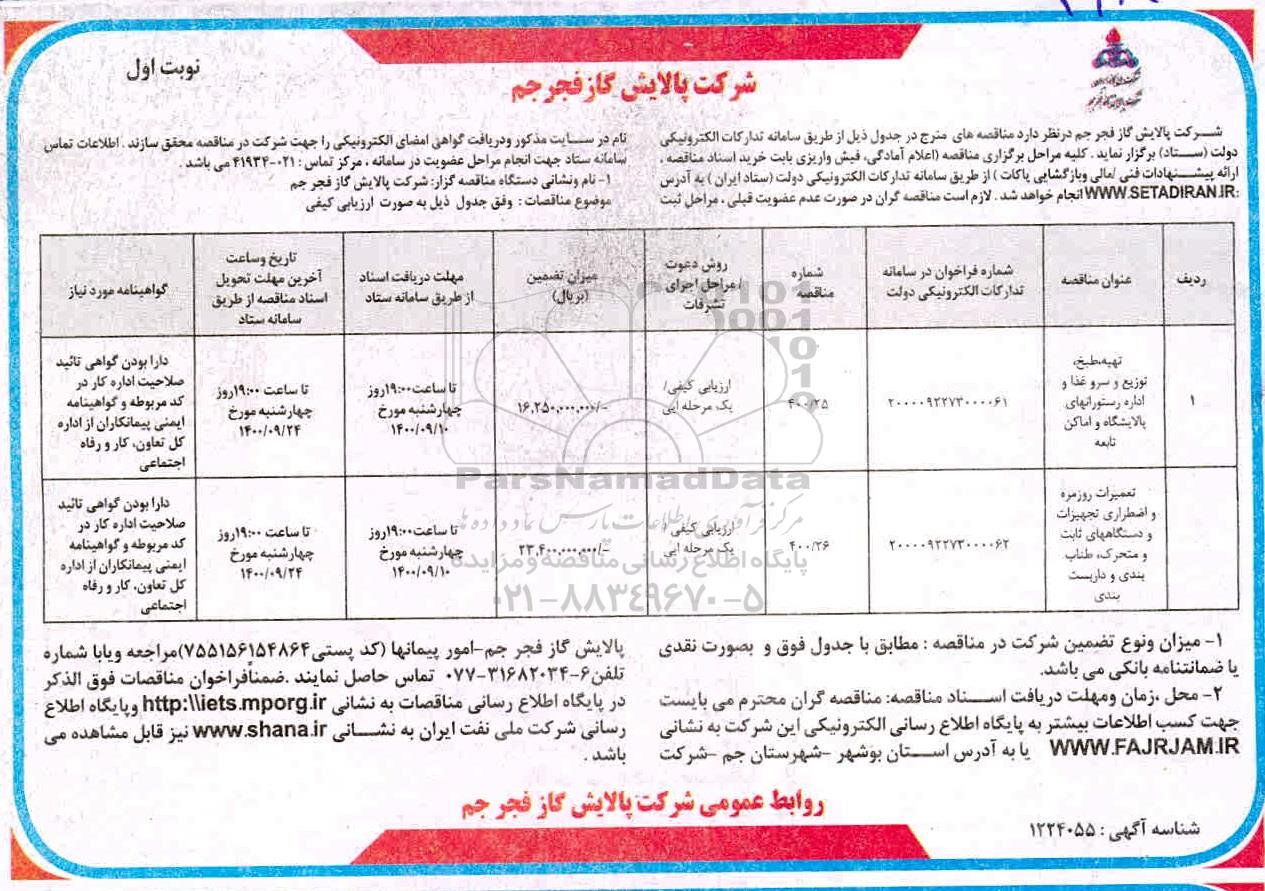 نوبت اول
شرکت پالایش گاز فجر جم
شرکت پالایش گاز فجر جم درنظر دارد مناقصه های مندرج در جدول ذیل از طریق سامانه تدارکات الکترونیکی
دولت (ستاد) برگزار نماید . کلیه مراحل برگزاری مناقصه (اعلام آمادگی، فیش واریزی بابت خرید اسناد مناقصه ،
ارائه پیشنهادات فنی /مالی وبازگشایی پاکات ) از طریق سامانه تدارکات الکترونیکی دولت (ستاد ایران ) به آدرس
:WWW.SETADIRAN.IR انجام خواهد شد . لازم است مناقصه گران در صورت عدم عضویت قبلی ، مراحل ثبت
نام در سایت مذکور ودریافت گواهی امضای الکترونیکی را جهت شرکت در مناقصه محقق سازند . اطلاعات تماس
سامانه ستاد جهت انجام مراحل عضویت در سامانه ، مرکز تماس : ۰۲۱-۴۱۹۳۴ می باشد .
۱- نام ونشانی دستگاه مناقصه گزار: شرکت پالایش گاز فجر جم
موضوع مناقصات : وفق جدول ذیل به صورت ارزیابی کیفی
ردیف
عنوان مناقصه
شماره فراخوان در سامانه
تدارکات الکترونیکی دولت
شماره
مناقصه
روش دعوت
/مراحل اجرای
تشرفات
میزان تضمین
(بریال)
مهلت دریافت اسناد
از طریق سامانه ستاد
تاریخ وساعت
آخرین مهلت تحویل
اسناد مناقصه از طریق
سامانه ستاد
گواهینامه مورد نیاز
۱
تهیه،طبخ،
توزیع و سرو غذا و
اداره رستورانهای
پالایشگاه و اماکن
تابعه
۲۰۰۰۰۹۲۲۷۳۰۰۰۰۶۱
۴۰۰/۲۵
ارزیابی کیفی/
یک مرحله ایی
۱۶,۲۵۰,۰۰۰,۰۰۰/-
تا ساعت ۱۹:۰۰روز
چهارشنبه مورخ
۱۴۰۰/۰۹/۱۰
تا ساعت ۱۹:۰۰روز
چهارشنبه مورخ
۱۴۰۰/۰۹/۲۴
دارا بودن گواهی تائید
صلاحیت اداره کار در
کد مربوطه و گواهینامه
ایمنی پیمانکاران از اداره
کل تعاون، کار و رفاه
اجتماعی
تعمیرات روزمره
و اضطراری تجهیزات
و دستگاههای ثابت
و متحرک، طناب
بندی و داربست
بندی
۲۰۰۰۰۹۲۲۷۳۰۰۰۰۶۲
۴۰۰/۲۶
ارزیابی کیفی /
یک مرحله ایی
۲۳,۴۰۰,۰۰۰,۰۰۰/-
تا ساعت ۱۹:۰۰روز
چهارشنبه مورخ
۱۴۰۰/۰۹/۱۰
تا ساعت ۱۹:۰۰روز
چهارشنبه مورخ
۱۴۰۰/۰۹/۲۴
دارا بودن گواهی تائید
صلاحیت اداره کار در
کد مربوطه و گواهینامه
ایمنی پیمانکاران از اداره
کل تعاون، کار و رفاه
اجتماعی
ParsNamadData
مرکز فرآوری اطلاعات پارس نماد داده ها
پایگاه اطلاع رسانی مناقصه و مزایده
۰۲۱-۸۸۳۴۹۶۷۰-۵
۱- میزان ونوع تضمین شرکت در مناقصه : مطابق با جدول فوق و بصورت نقدی
یا ضمانتنامه بانکی می باشد.
۲- محل ،زمان ومهلت دریافت اسناد مناقصه: مناقصه گران محترم می بایست
جهت کسب اطلاعات بیشتر به پایگاه اطلاع رسانی الکترونیکی این شرکت به نشانی
WWW.FAJRJAM.IR یا به آدرس استان بوشهر -شهرستان جم -شرکت
پالایش گاز فجر جم-امور پیمانها (کد پستی۷۵۵۱۵۶۱۵۴۸۶۴)مراجعه ویابا شماره
تلفن۶-۰۷۷-۳۱۶۸۲۰۳۴ تماس حاصل نمایند .ضمناًفراخوان مناقصات فوق الذکر
در پایگاه اطلاع رسانی مناقصات به نشانی http:\\iets.mporg.ir وپایگاه اطلاع
رسانی شرکت ملی نفت ایران به نشانی www.shana.ir نیز قابل مشاهده می
باشد .
روابط عمومی شرکت پالایش گاز فجر جم
شناسه آگهی : ۱۲۲۴۰۵۵